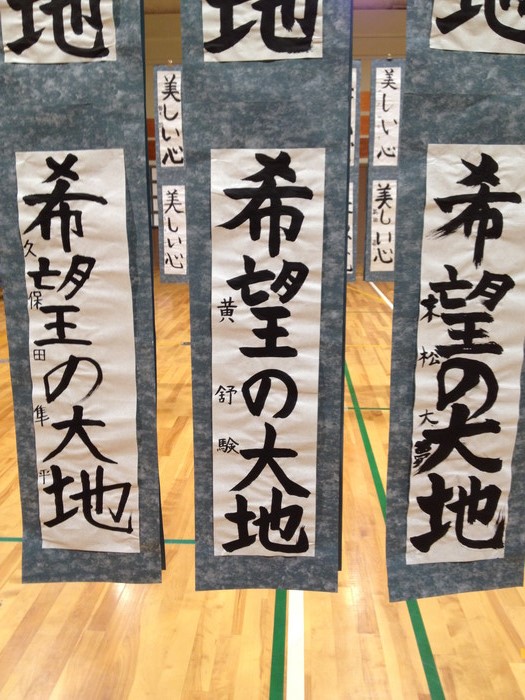 地
地
地
希望の大地
久保田隼平
希望の大地
黄舒験
希望の大地
木松大夢
美しい心
美しい心
美しい心
美しい心